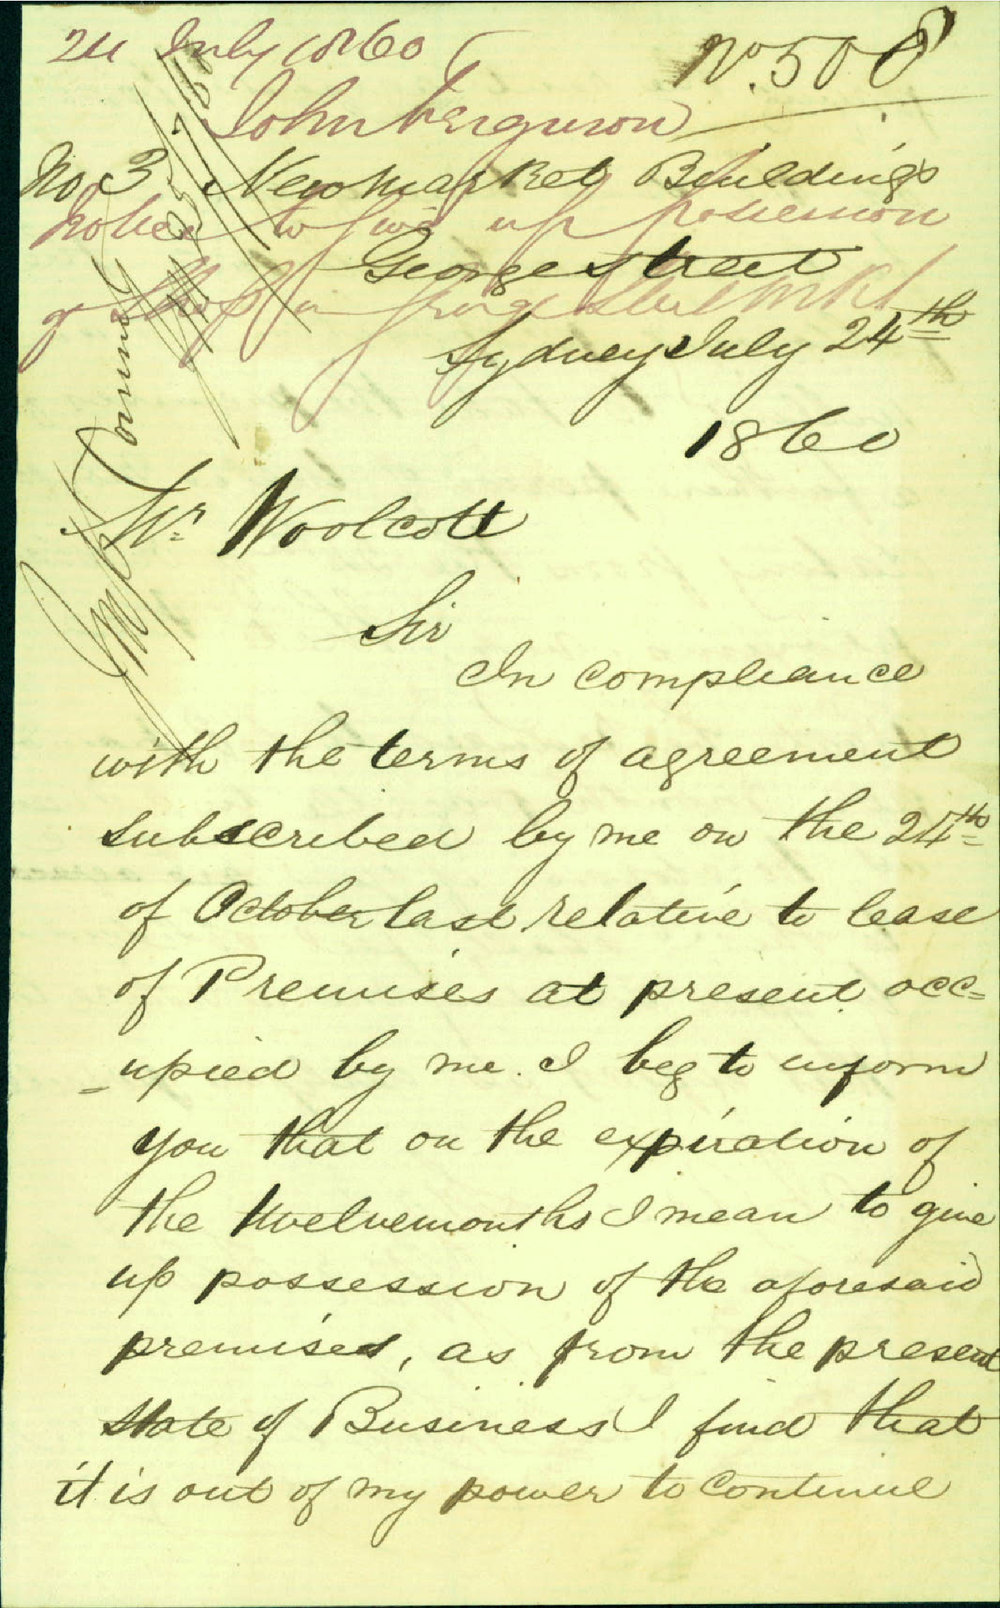 24 July 1860
No. 508
John Ferguson
No 3 New Market Buildings
Notice to give up possession
George Street
of Shop in George Street Mkt
Sydney July 24th
1860
Mr Woolcott
Sir
In compliance
with the terms of agreement
subscribed by me on the 24th
of October last relative to lease
of Premises at present occ=
-upied by me. I beg to inform
you that on the expiration of
the twelvemonths I mean to give
up possession of the aforesaid
premises, as from the present
state of Business I find that
it is out of my power to continue